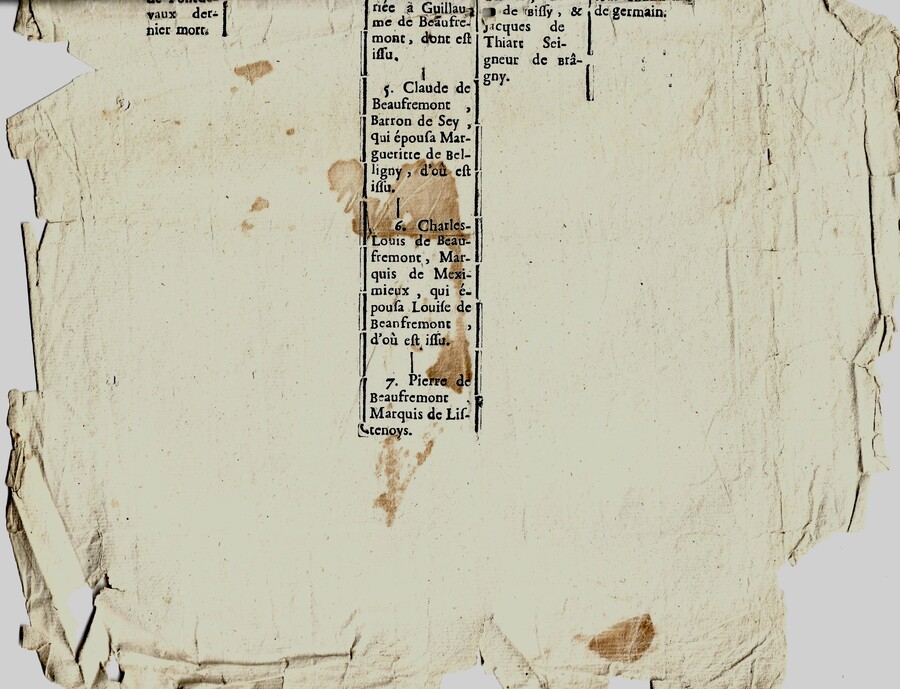 vaux der-
nier mort.
riée à Guillau-
me de Beaufre-
mont, dont est
issu.
5. Claude de
Beaufremont,
Barron de Sey,
qui épousa Mar-
gueritte de Bel-
ligny, d'où est
issu.
6. Charles-
Louis de Beau-
fremont, Mar-
quis de Mexi-
mieux, qui é-
pousa Louise de
Beanfremont,
d'où est issu.
7. Pierre de
Beaufremont
Marquis de Lis-
tenoys.
de Bissy, &
Jacques de
Thiart Sei-
gneur de Brâ-
gny.
de germain.